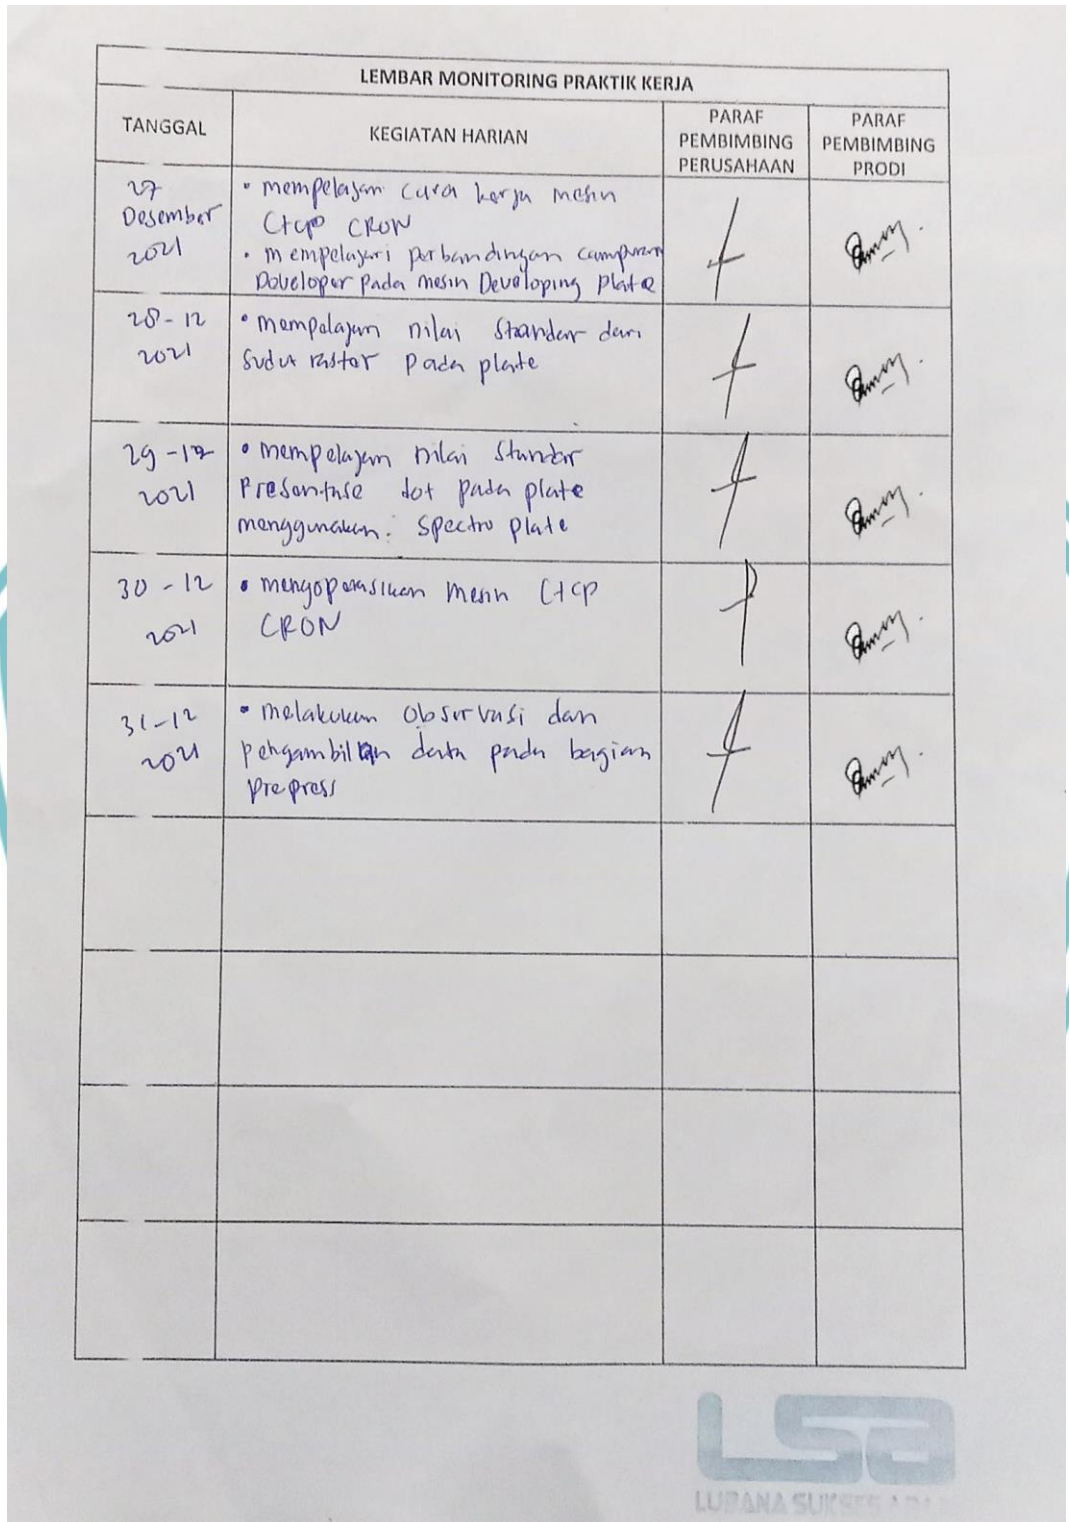 LEMBAR MONITORING PRAKTIK KERJA
TANGGAL
KEGIATAN HARIAN
PARAF
PEMBIMBING
PERUSAHAAN
PARAF
PEMBIMBING
PRODI
27
Desember
2021
• mempelajari cara kerja mesin
Ctcp CRON
• mempelajari perbandingan campuran
Developer pada mesin Developing plate
28-12
2021
• mempelajari nilai Standar dari
Sudut raster pada plate
29-12
2021
• mempelajari nilai Standar
Presentase dot pada plate
menggunakan Spectro plate
30-12
2021
• mengoperasikan mesin Ctcp
CRON
31-12
2021
• melakukan observasi dan
pengambilan data pada bagian
prepress
LSA
LUBANA SUKSES